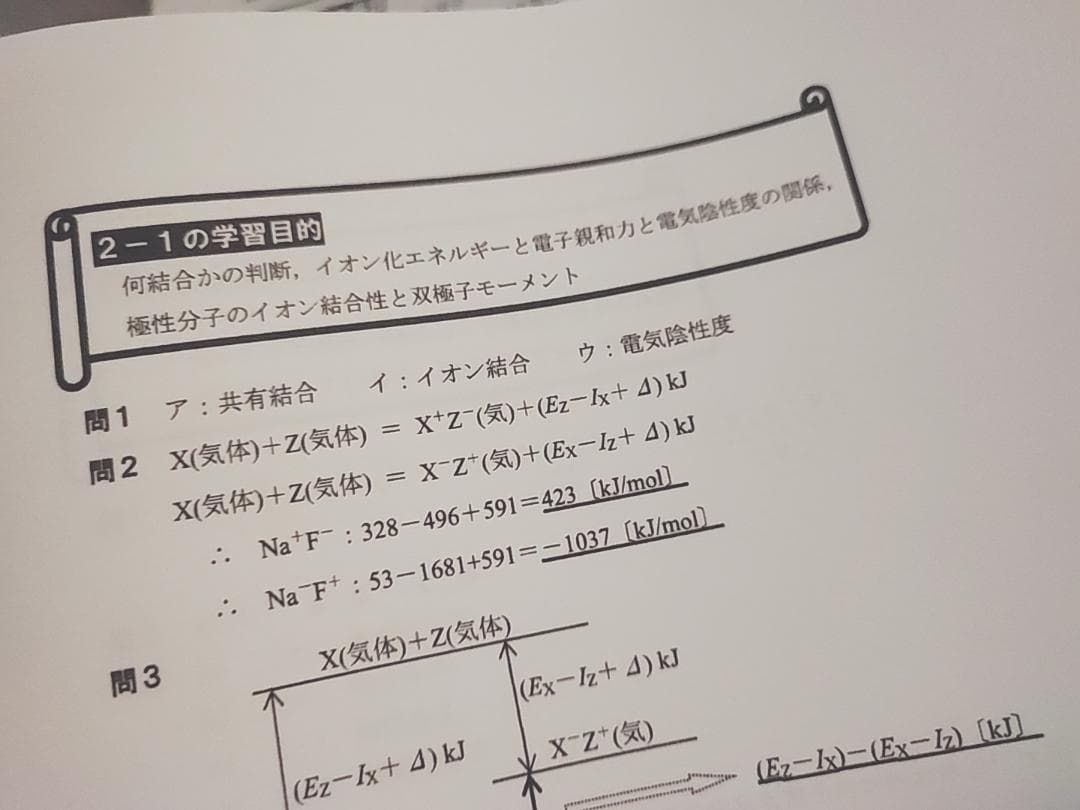 2－1の学習目的
何結合かの判断，イオン化エネルギーと電子親和力と電気陰性度の関係，
極性分子のイオン結合性と双極子モーメント
問1 ア：共有結合 イ：イオン結合 ウ：電気陰性度
問2 X(気体)＋Z(気体) ＝ X⁺Z⁻(気)＋(E_Z－I_X＋Δ) kJ
X(気体)＋Z(気体) ＝ X⁻Z⁺(気)＋(E_X－I_Z＋Δ) kJ
∴ Na⁺F⁻：328－496＋591＝423〔kJ/mol〕
∴ Na⁻F⁺：53－1681+591＝－1037〔kJ/mol〕
問3
X(気体)＋Z(気体)
(E_X－I_Z＋Δ) kJ
X⁻Z⁺(気)
(E_Z－I_X＋Δ) kJ
(E_Z－I_X)－(E_X－I_Z)〔kJ〕